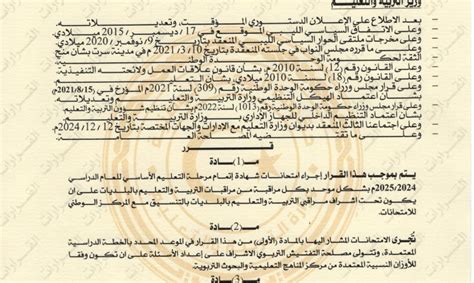 وزير التربية والتعليم
بعد الاطلاع على الإعلان الدستوري المؤقت، وتعديلاته.
وعلى الاتفاق السياسي الليبي الموقع في 17/ ديسمبر/ 2015 ميلادي
وعلى مخرجات ملتقى الحوار السياسي الليبي المنعقد بتاريخ 9/نوفمبر/2020 ميلادي
وعلى ما قرره مجلس النواب في جلسته المنعقدة بتاريخ 2021/3/10م في مدينة سرت بشأن منح
الثقة لحكومة الوحدة الوطنية
وعلى القانون رقم (12) لسنة 2010م بشأن قانون علاقات العمل ولائحته التنفيذية
وعلى القانون رقم (18) لسنة 2010 ميلادي
وعلى قرار مجلس وزراء حكومة الوحدة الوطنية رقم (309) لسنة 2021م المؤرخ في (2021/8/15م)
بشأن اعتماد الهيكل التنظيمي وزارة التربية والتعليم وتعديلاته
وعلى قرار مجلس وزراء حكومة الوحدة الوطنية رقم (1013) لسنة 2022م بشأن تنظيم شؤون التربية والتعليم
بشأن اعتماد التنظيم الداخلي للجهاز الإداري بوزارة التربية والتعليم
وعلى اجتماعنا الثالث المنعقد بديوان وزارة التعليم مع الإدارات والجهات المختصة بتاريخ 2024/12/12م
وعلى ما تقتضيه المصلحة العامة
قرر
مـ(1)ـادة
يتم بموجب هذا القرار إجراء امتحانات شهادة إتمام مرحلة التعليم الأساسي للعام الدراسي
2025/2024م بشكل موحد بكل مراقبة من مراقبات التربية والتعليم بالبلديات على ان
يكون تحت اشراف مراقبي التربية والتعليم بالبلديات بالتنسيق مع المركز الوطني
للامتحانات.
مـ(2)ـادة
تجرى الامتحانات المشار اليها بالمادة (الأولى) من هذا القرار في الموعد المحدد بالخطة الدراسية
المعتمدة، وتتولى مصلحة التفتيش التربوي الاشراف على إعداد الأسئلة على ان تكون وفقا
للأوزان النسبية المعتمدة من مركز المناهج التعليمية والبحوث التربوية.
مـ(3)ـادة